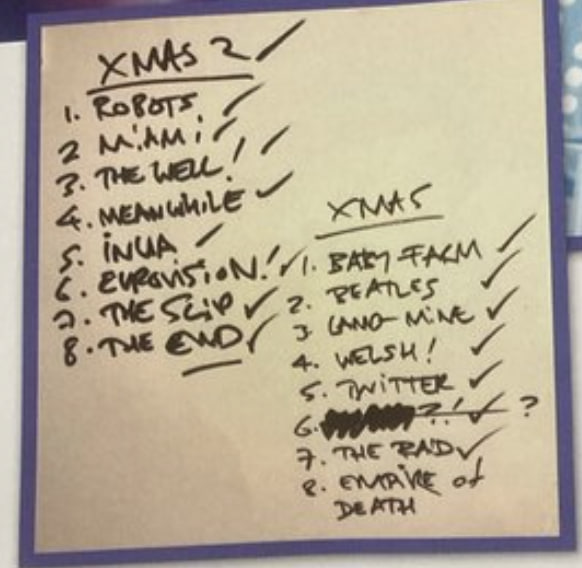 XMAS 2 ✓
1. ROBOTS ✓
2 MIAMI ✓
3. THE WELL! ✓
4. MEANWHILE ✓
5. INUA ✓
6. EUROVISION! ✓
7. THE SLIP ✓
8. THE END ✓
XMAS
1. BABY FARM ✓
2. BEATLES ✓
3 LAND-MINE ✓
4. WELSH! ✓
5. TWITTER ✓
6. ?! ✓ ?
7. THE RAID ✓
8. EMPIRE of
DEATH